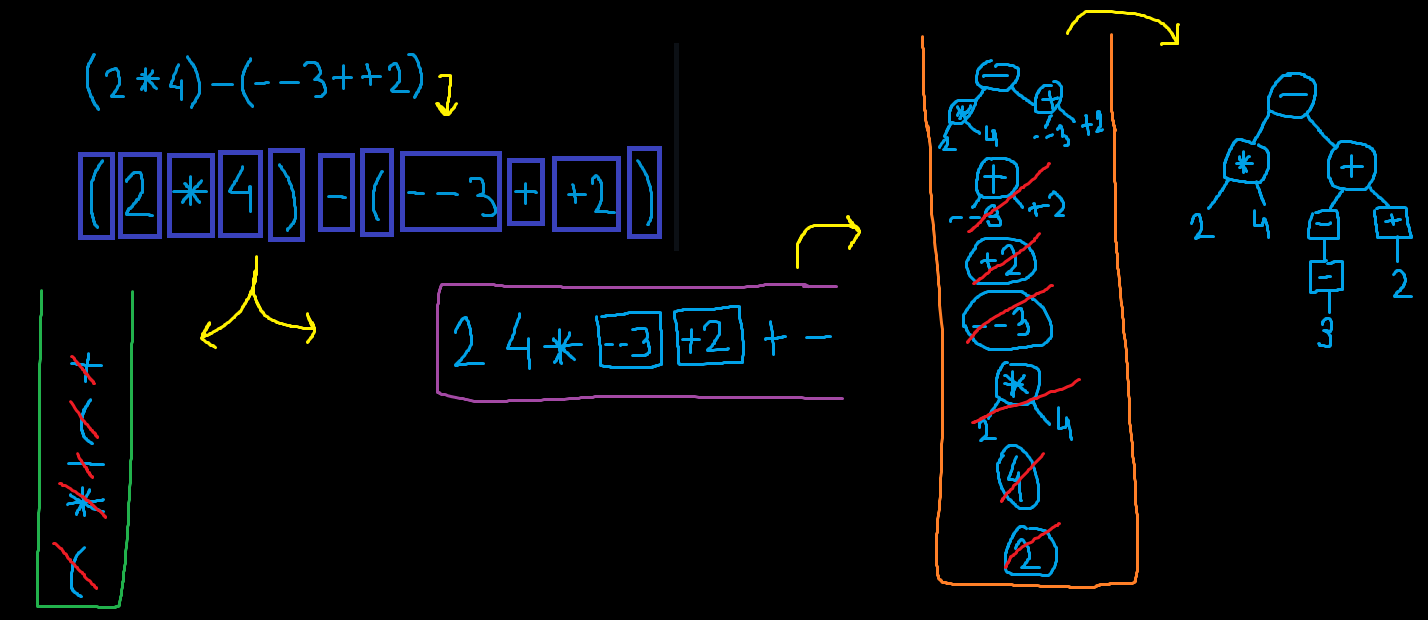 (2*4)-(--3++2)
( 2 * 4 ) - ( --3 + +2 )
+
(
-
*
(
2 4 * --3 +2 + -
-
* +
2 4 --3 +2
+
--3 +2
+2
--3
*
2 4
4
2
-
* +
2 4 - +
- 2
3